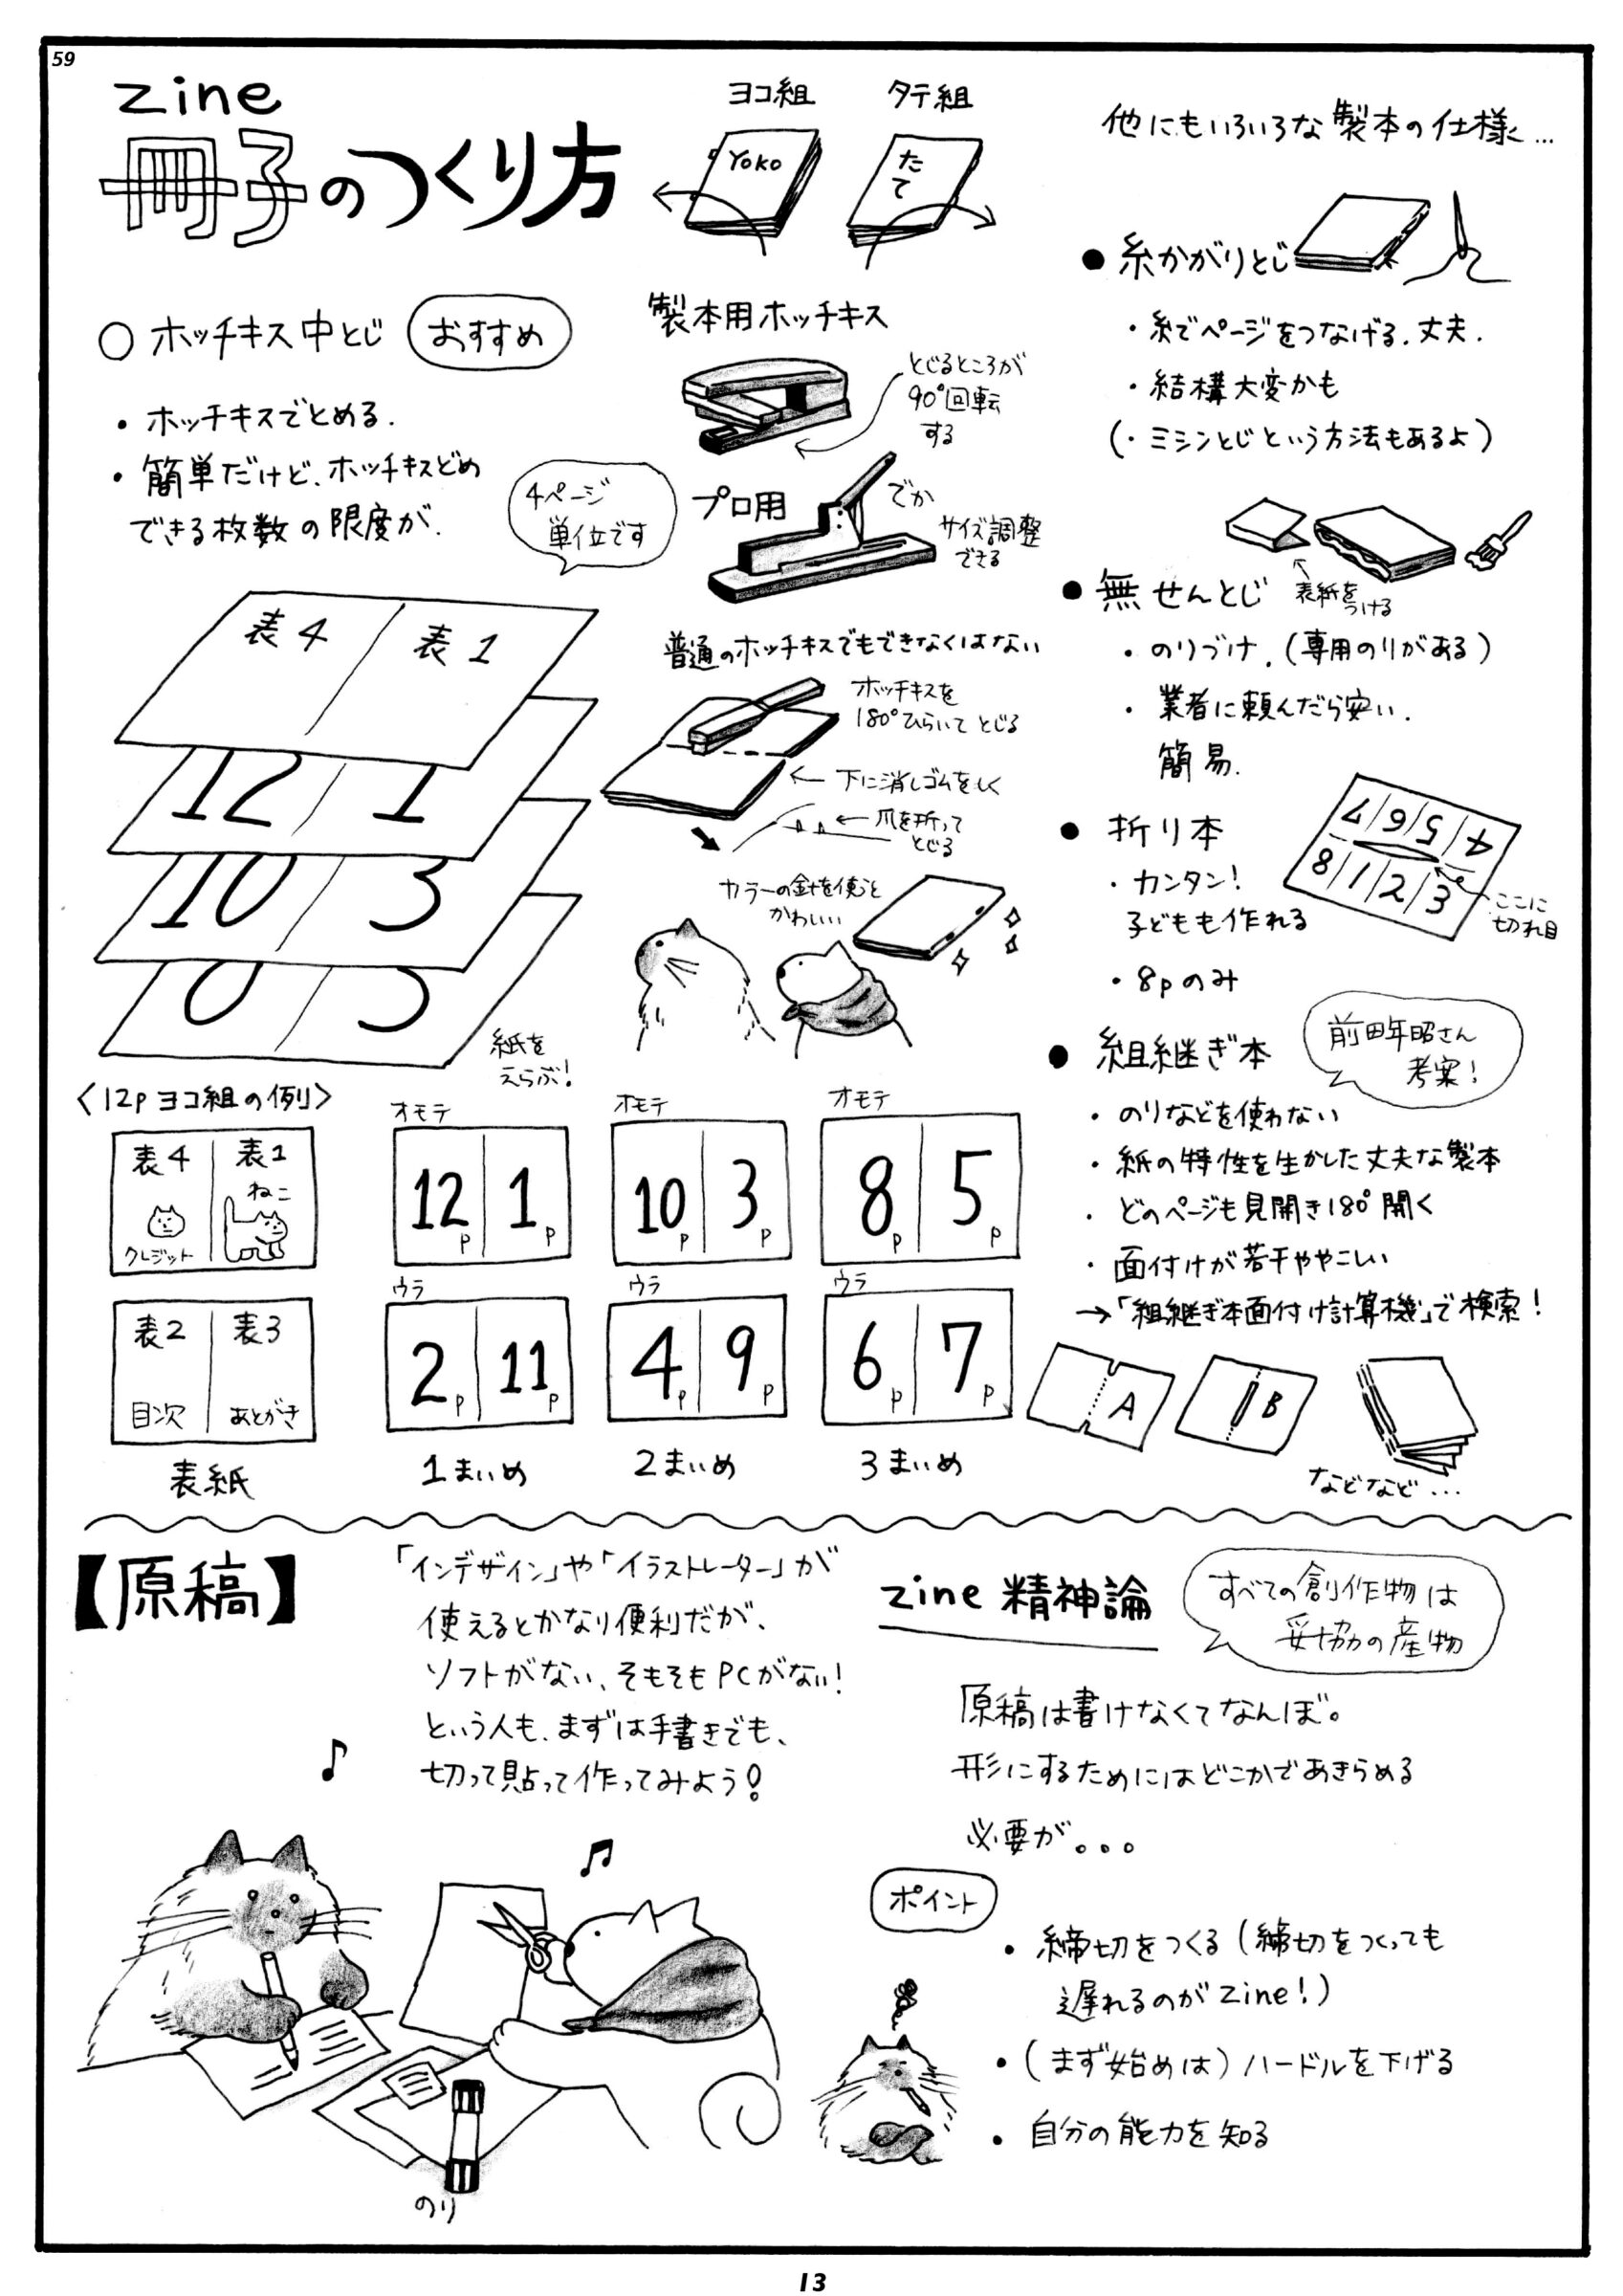 59
zine
冊子のつくり方
ヨコ組
YOKO
タテ組
たて
○ ホッチキス中とじ
おすすめ
・ホッチキスでとめる.
・簡単だけど、ホッチキスどめ
できる枚数の限度が.
4ページ
単位です
製本用ホッチキス
とじるところが
90°回転
する
プロ用
でか
サイズ調整
できる
普通のホッチキスでもできなくはない
ホッチキスを
180°ひらいて とじる
← 下に消しゴムをしく
← 爪を折って
とじる
カラーの針を使うと
かわいい
表4
表1
12
1
10
3
紙を
えらぶ!
〈12p ヨコ組の例〉
表4
クレジット
表1
ねこ
表2
目次
表3
あとがき
表紙
オモテ
12p
1p
ウラ
2p
11p
1まいめ
オモテ
10p
3p
ウラ
4p
9p
2まいめ
オモテ
8p
5p
ウラ
6p
7p
3まいめ
他にもいろいろな製本の仕様…
● 糸かがりとじ
・糸でページをつなげる.丈夫.
・結構大変かも
(・ミシンとじという方法もあるよ)
● 無せんとじ
表紙を
つける
・のりづけ.(専用のりがある)
・業者に頼んだら安い.
簡易.
● 折り本
・カンタン!
子どもも作れる
・8pのみ
7 6 5 4
8 1 2 3
ここに
切れ目
● 組継ぎ本
前田年昭さん
考案!
・のりなどを使わない
・紙の特性を生かした丈夫な製本
・どのページも見開き180°開く
・面付けが若干ややこしい
→「組継ぎ本面付け計算機」で検索!
A
B
などなど…
【原稿】
「インデザイン」や「イラストレーター」が
使えるとかなり便利だが、
ソフトがない、そもそもPCがない!
という人も、まずは手書きでも、
切って貼って作ってみよう!
のり
zine 精神論
すべての創作物は
妥協の産物
原稿は書けなくてなんぼ。
形にするためにはどこかであきらめる
必要が。。。
ポイント
・締切をつくる(締切をつくっても
遅れるのがzine!)
・(まず始めは)ハードルを下げる
・自分の能力を知る
13